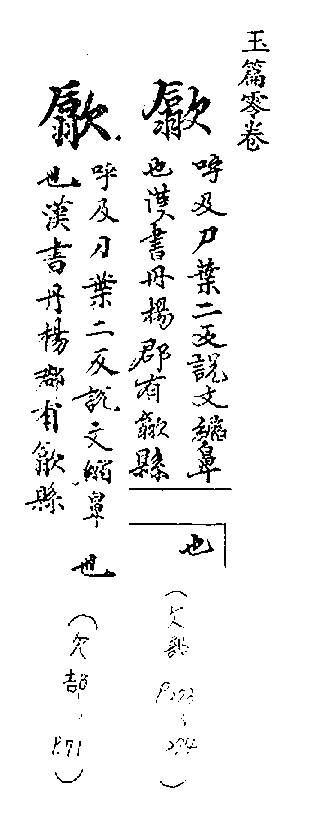 玉篇零卷
歙
呼及刀葉二反說文縮鼻
也漢書丹楊郡有歙縣
也
(欠部
歙
呼及刀葉二反說文縮鼻
也漢書丹楊郡有歙縣
也
(欠部，
871)